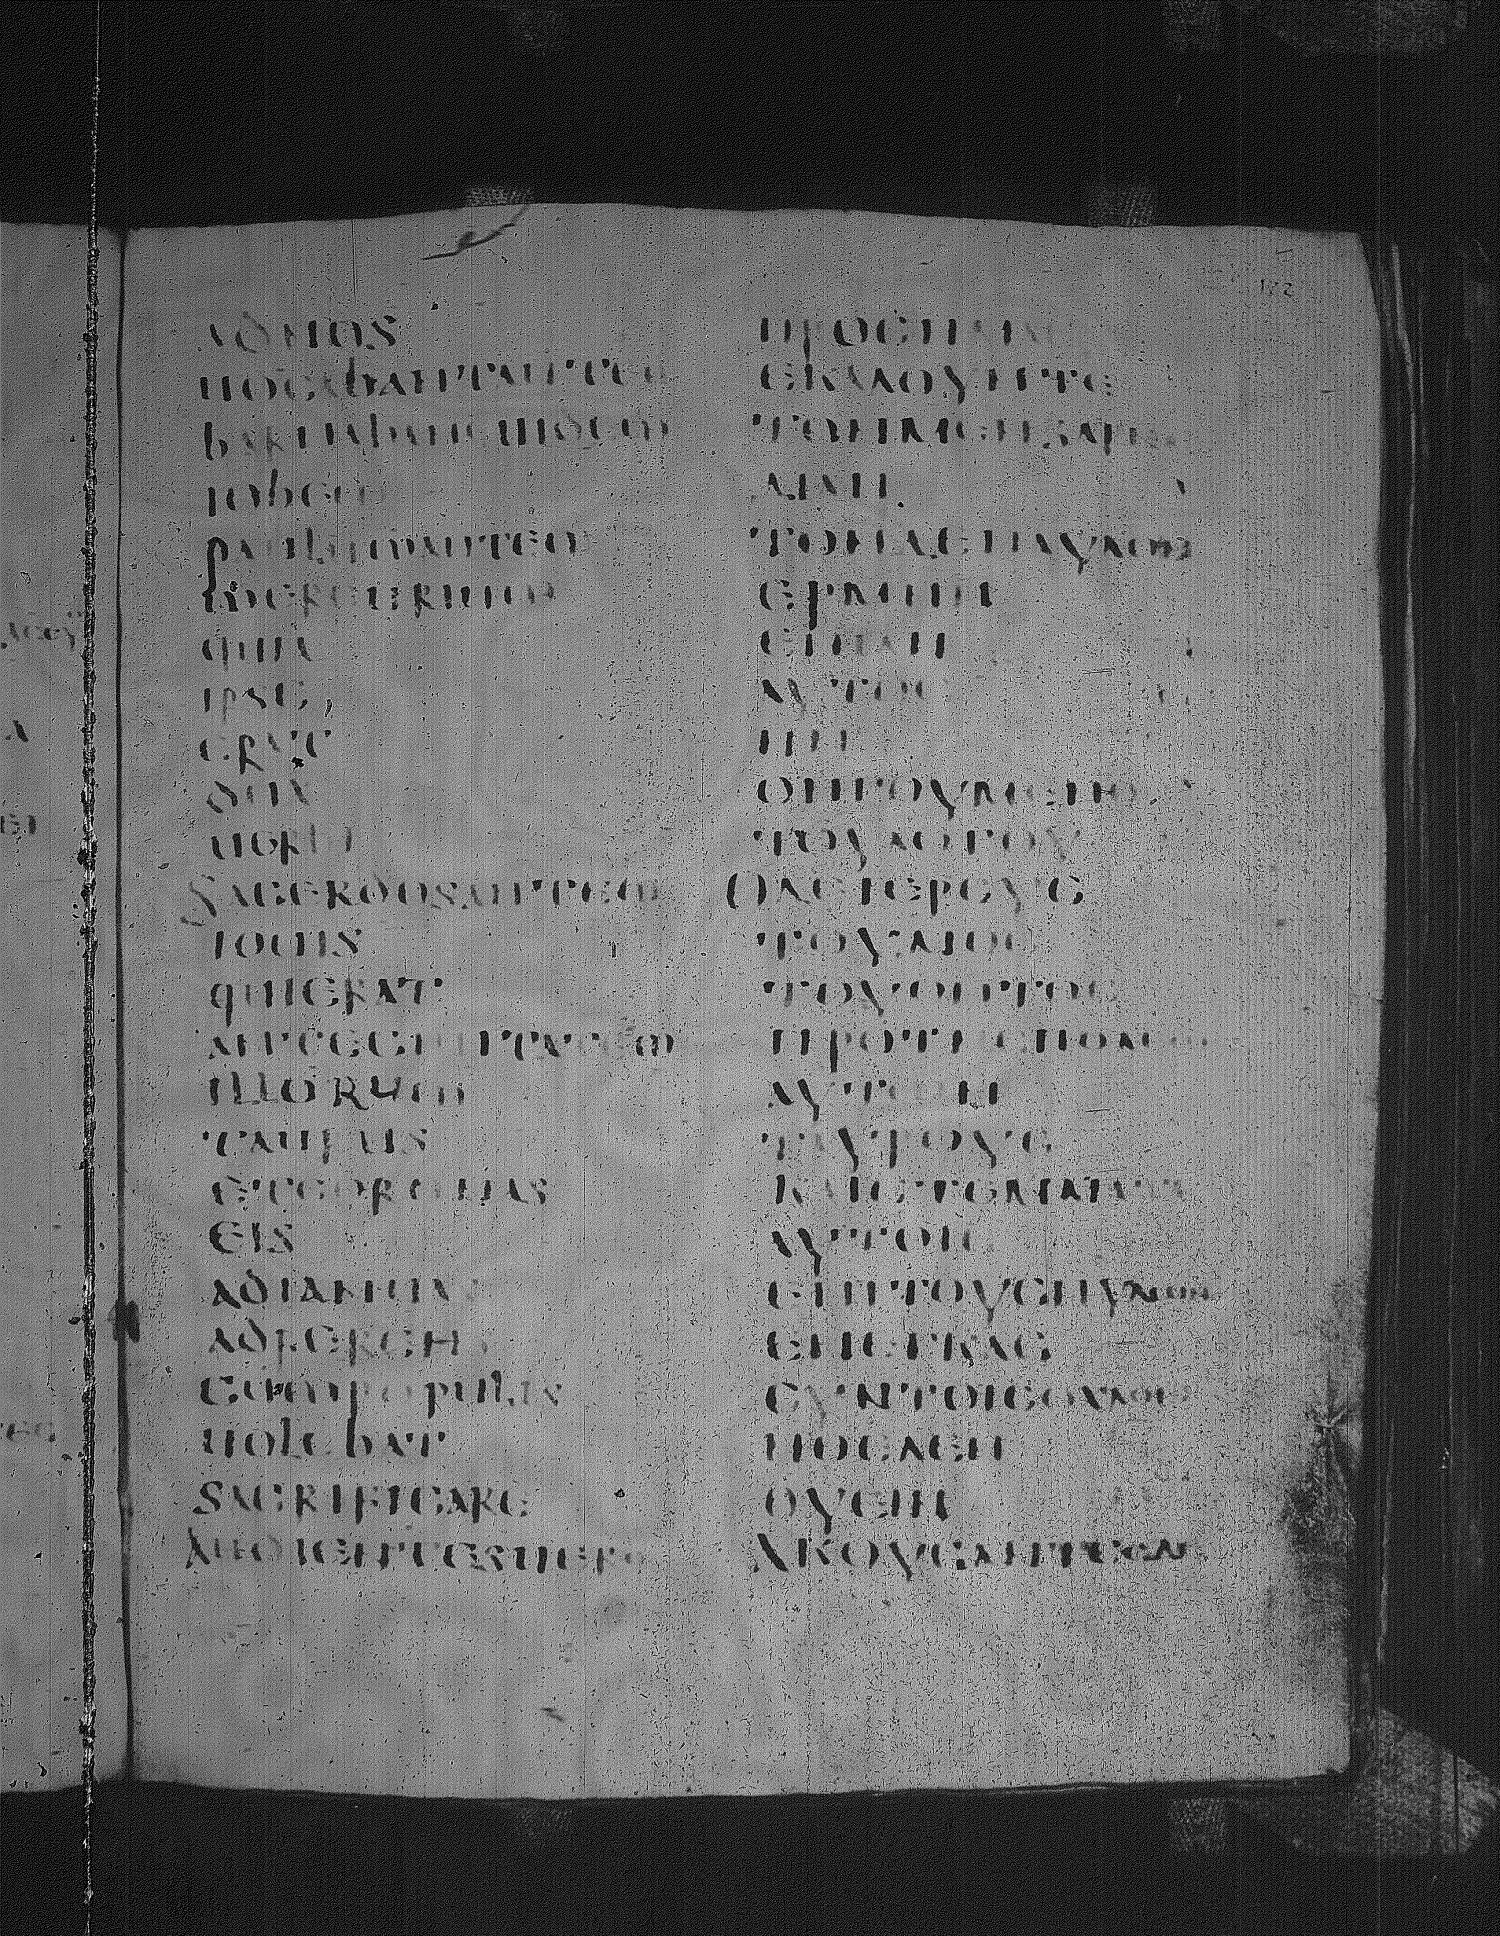 adnos
uocabantautem
barnabanquidem
iobem
paulumautem
mercurium
quia
ipse
erat
dux
uerbi
Sacerdosautem
iouis
quierat
anteciuitatem
illorum
taurus
etcoronas
eis
adianuas
adferens
cumpopulis
uolebat
sacrificare
Audientesuero
ΠΡΟCΗΜΑC
ΕΚΑΛΟΥΝΤΕ
ΤΟΝΜΕΝΒΑΡΝΑΒΑΝ
ΔΙΑΝ
ΤΟΝΔΕΠΑΥΛΟΝ
ΕΡΜΗΝ
ΕΠΙΔΗ
ΑΥΤΟC
ΗΝ
ΟΗΓΟΥΜΕΝΟC
ΤΟΥΛΟΓΟΥ
ΟΔΕΙΕΡΕΥC
ΤΟΥΔΙΟC
ΤΟΥΟΝΤΟC
ΠΡΟΤΗCΠΟΛΕΩC
ΑΥΤΩΝ
ΤΑΥΡΟΥC
ΚΑΙCΤΕΜΜΑΤΑ
ΑΥΤΟΙC
ΕΠΙΤΟΥCΠΥΛΩΝΑC
ΕΝΕΓΚΑC
CΥΝΤΟΙCΟΧΛΟΙC
ΗΘΕΛΕΝ
ΘΥΕΙΝ
ΑΚΟΥCΑΝΤΕCΔΕ